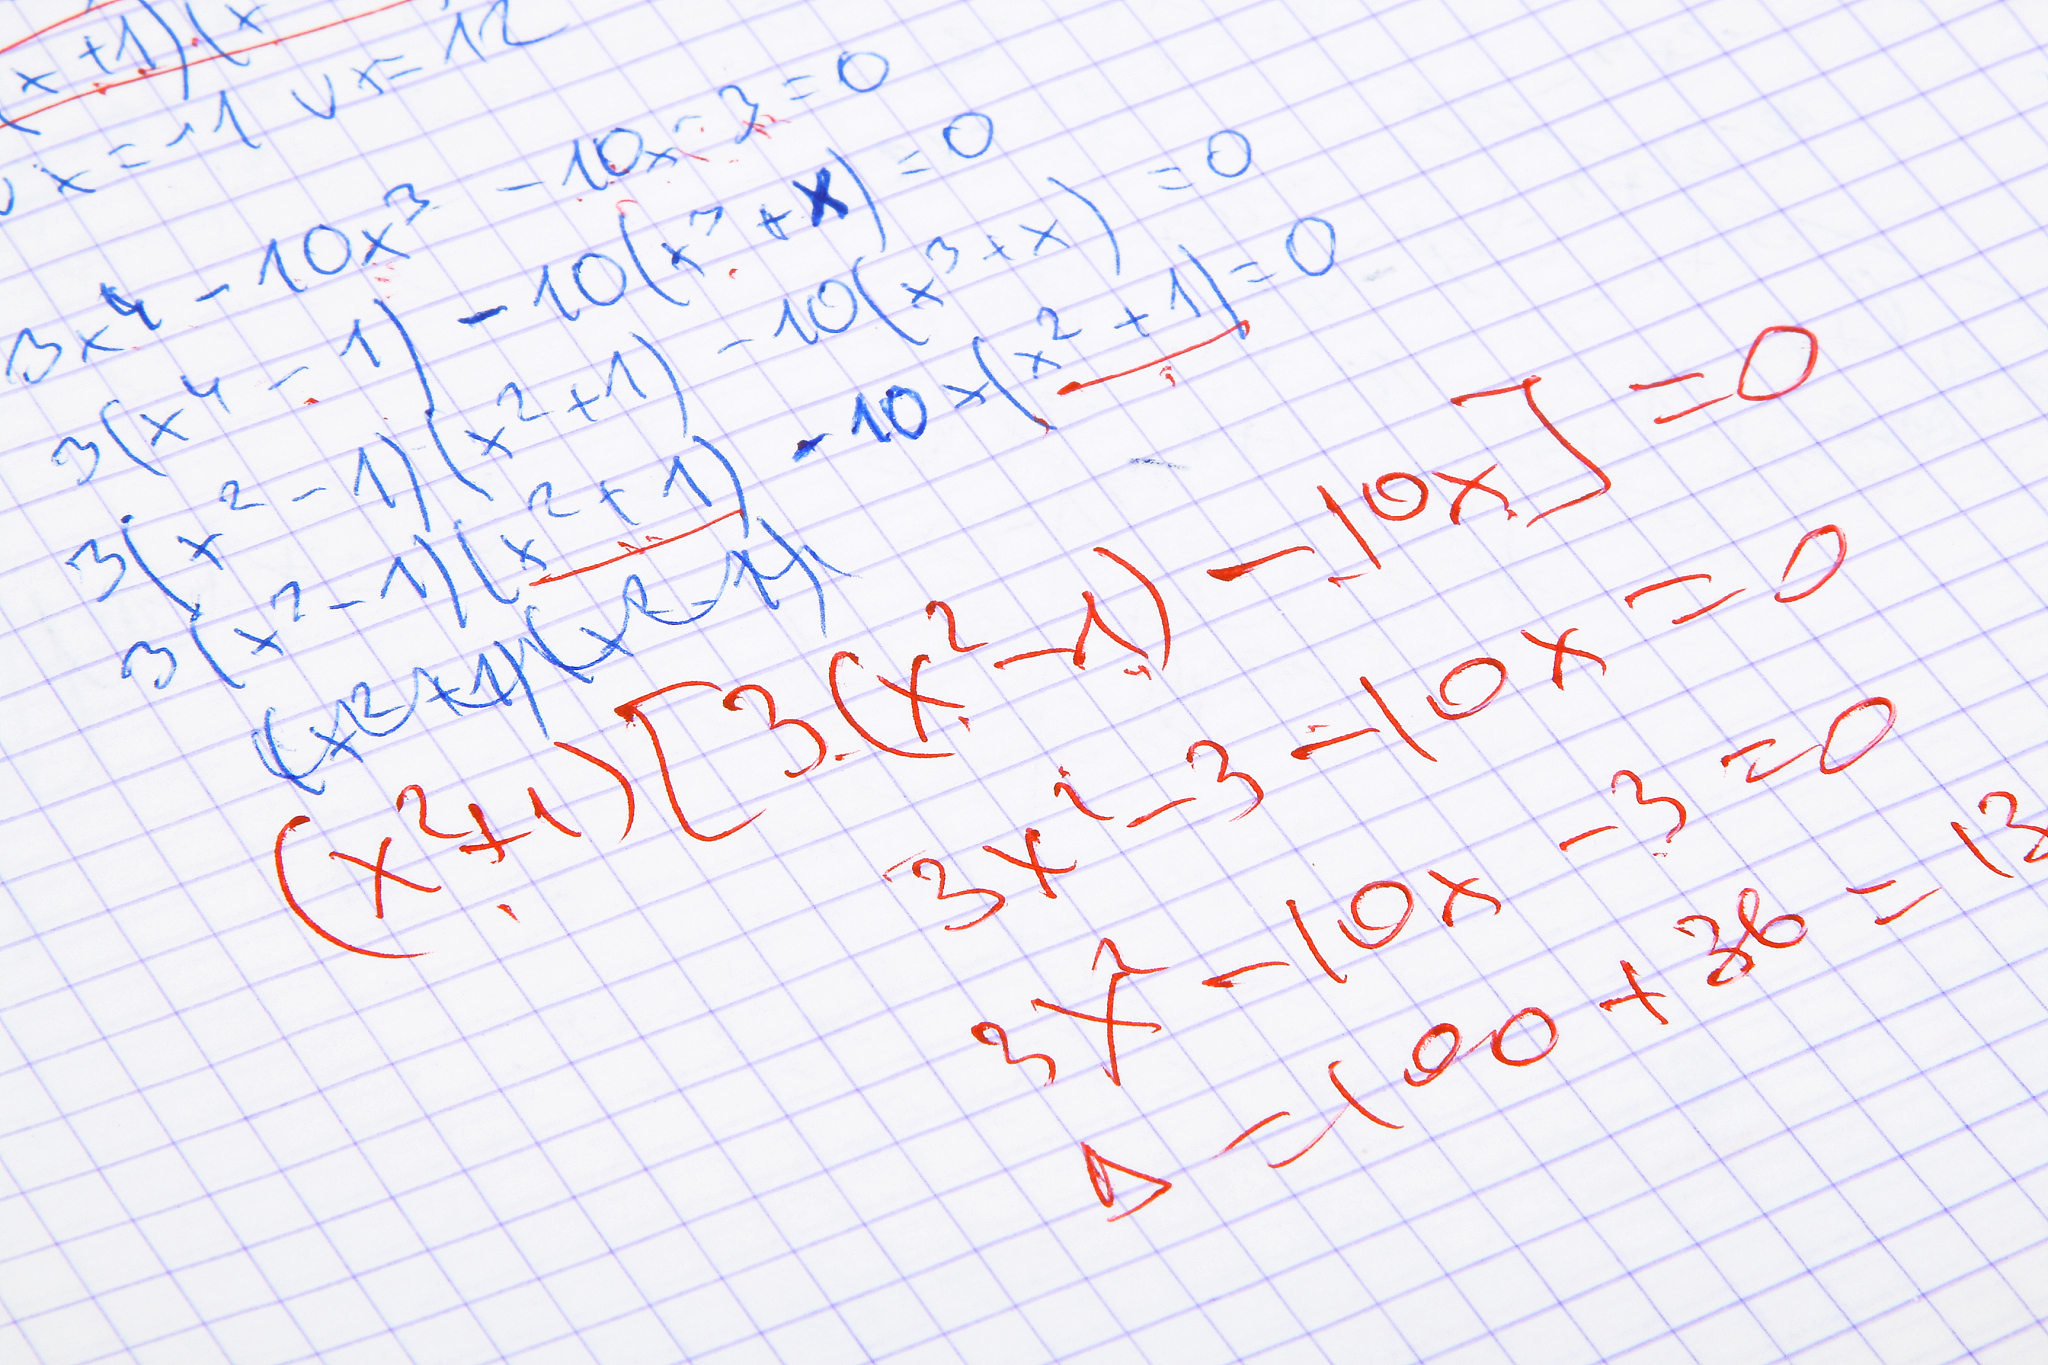 (x+1)(x
x = -11 ∨ x = 12
3x⁴ - 10x³ - 10x - 3 = 0
3(x⁴ - 1) - 10(x³ + x) = 0
3(x² - 1)(x² + 1) - 10(x³ + x) = 0
3(x² - 1)(x² + 1) - 10x(x² + 1) = 0
(x² + 1)(x² - 1)
(x² + 1)[3(x² - 1) - 10x] = 0
3x² - 3 - 10x = 0
3x² - 10x - 3 = 0
Δ = 100 + 36 = 13